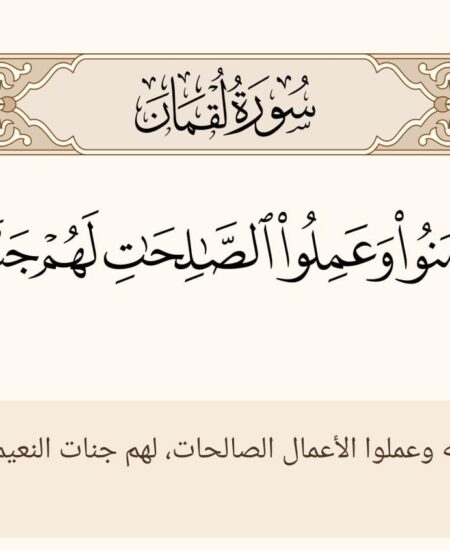 سُورَةُ لُقْمَانَ
وَعَمِلُوا۟ ٱلصَّٰلِحَٰتِ لَهُمْ
وعملوا الأعمال الصالحات، لهم جنات النعيم